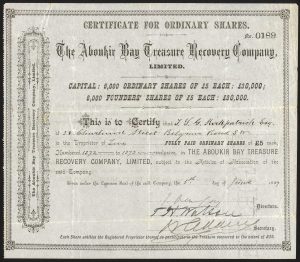 CERTIFICATE FOR ORDINARY SHARES.
No. 0189
The Aboukir Bay Treasure Recovery Company,
LIMITED.
CAPITAL: 6,000 ORDINARY SHARES OF £5 EACH: £30,000;
6,000 FOUNDERS' SHARES OF £5 EACH: £30,000.
This is to Certify that T. S. G. Kirkpatrick Esq.
of Street Belgrave Road S W
is the Proprietor of FULLY PAID ORDINARY SHARES of £5 each,
Numbered inclusive, in THE ABOUKIR BAY TREASURE
RECOVERY COMPANY, LIMITED, subject to the Articles of Association of the
said Company.
Given under the Common Seal of the said Company, the day of
Directors.
Secretary.
Each Share entitles the Registered Proprietor thereof to participate in the Treasure recovered to the extent of
The Aboukir Bay Treasure Recovery Company, Limited.